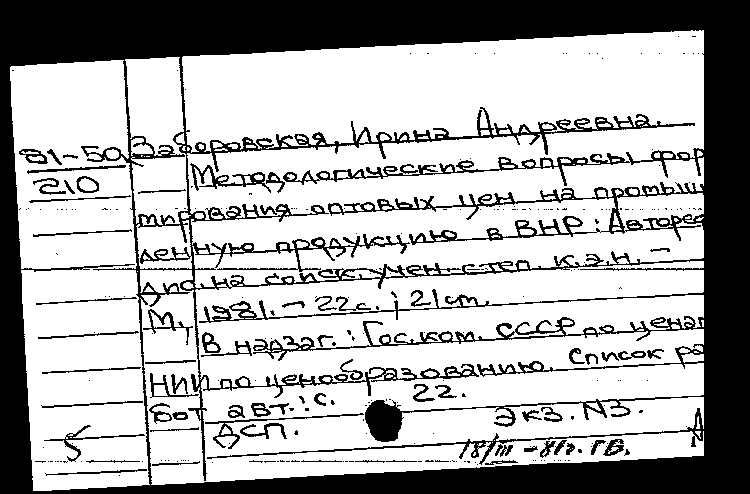 81-50 Заборовская, Ирина Андреевна.
210 Методологические вопросы фор
мирования оптовых цен на промыш
ленную продукцию в ВНР: Авторее
дис. на соиск. учен. степ. к.э.н. -
М., 1981. - 22 с.; 21 cm.
В надзаг.: Гос. ком. СССР по ценам
НИИ по ценообразованию. Список ра
бот авт.: с. 22.
ДСП. Экз. N3.
5 18/III - 81г. ГБ.